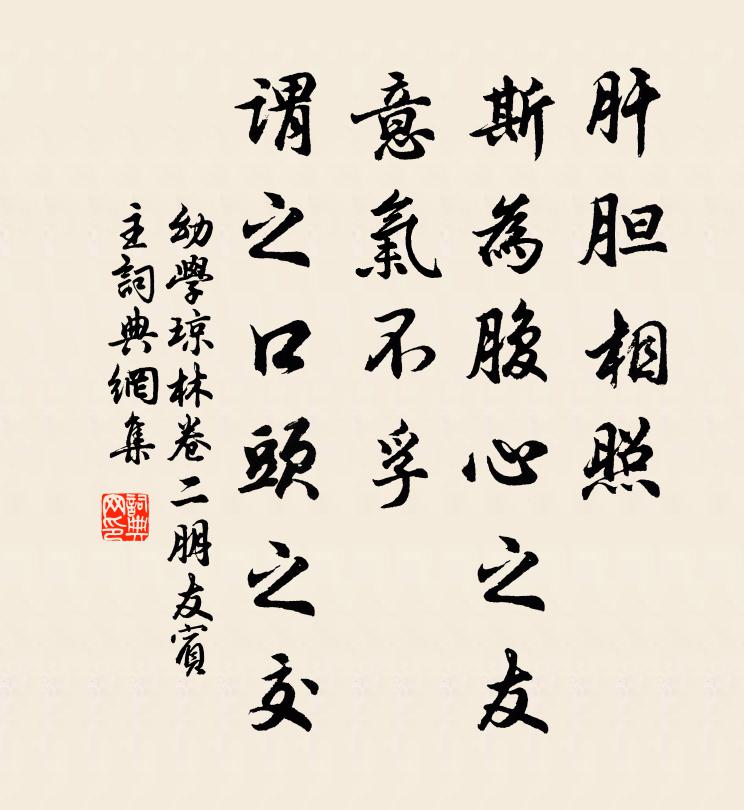 肝胆相照
斯為腹心之友
意氣不孚
谓之口頭之交
幼學琼林卷二朋友賓
主詞典網集
詞典
网印